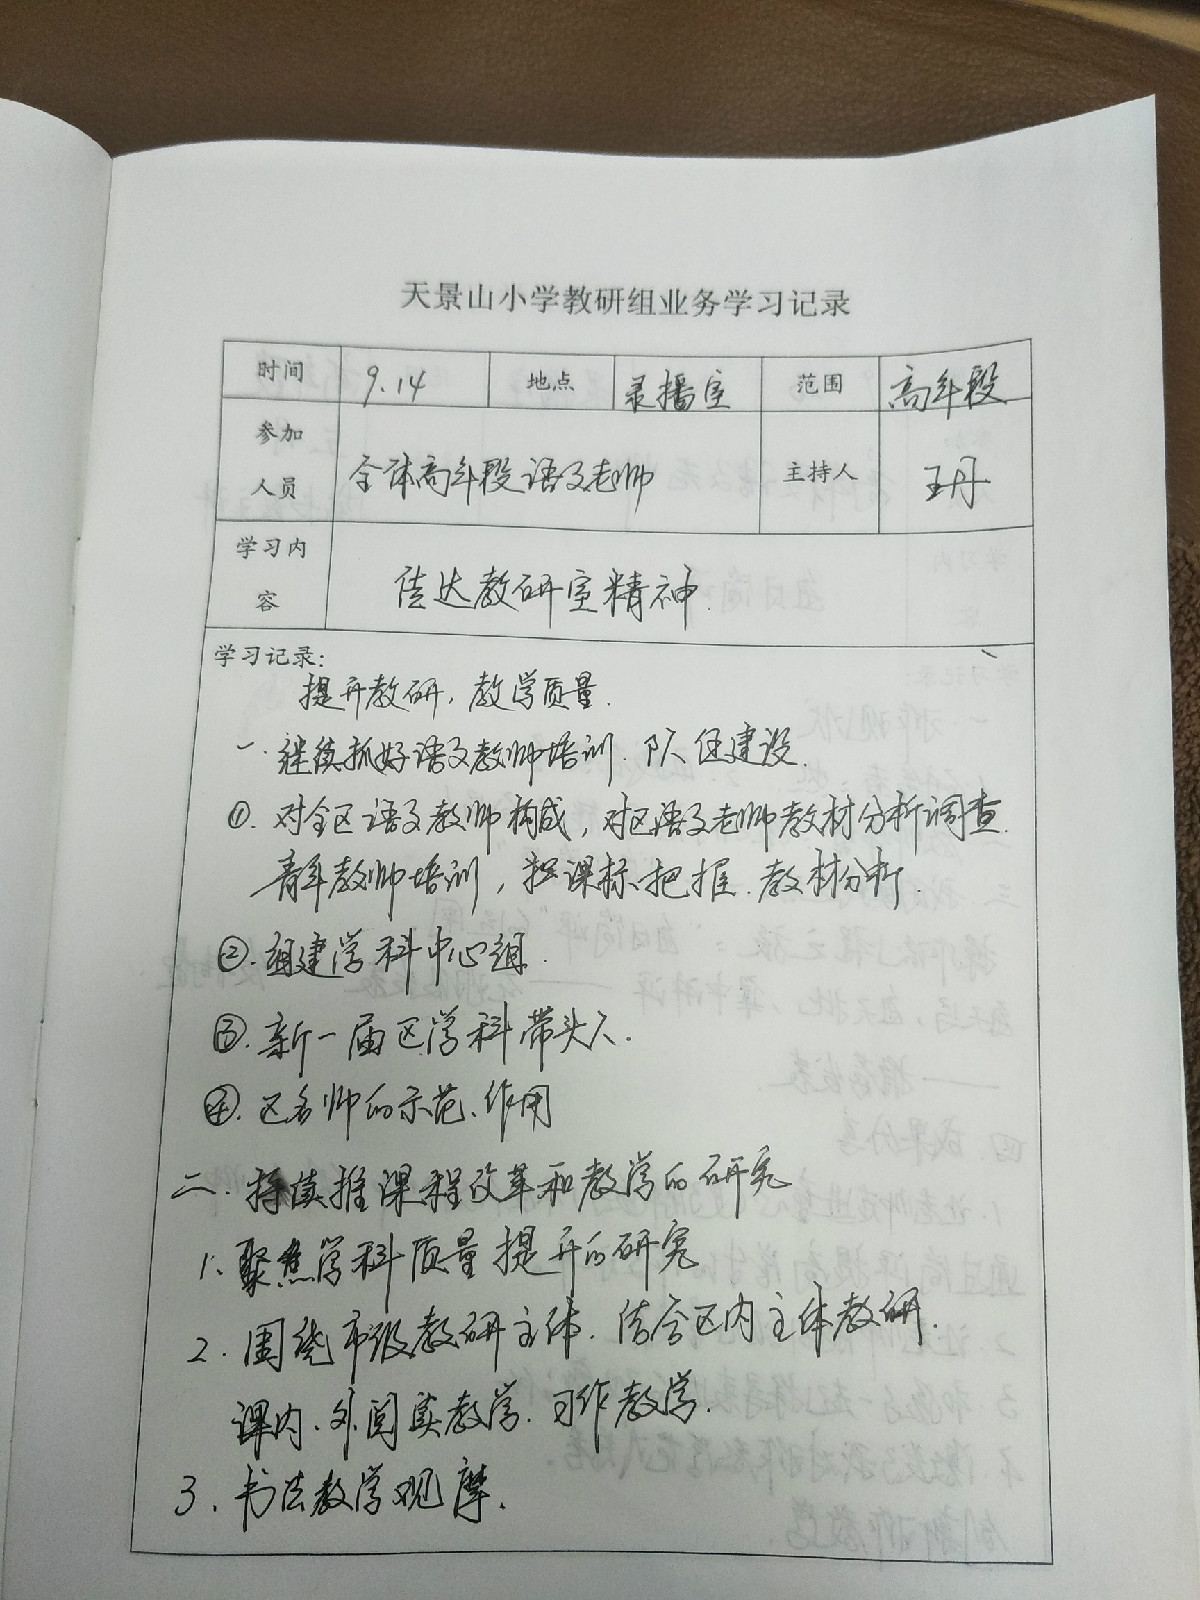 天景山小学教研组业务学习记录
时间 9.14 地点 录播室 范围 高年段
参加人员 全体高年段语文老师 主持人 王丹
学习内容 传达教研室精神.
学习记录:
提升教研,教学质量.
一.继续抓好语文教师培训.队伍建设.
①.对全区语文教师构成,对区语文老师教材分析调查.
青年教师培训,把课标把握.教材分析.
②.组建学科中心组.
③.新一届区学科带头人.
④.区名师的示范、作用
二.持续推课程改革和教学的研究
1.聚焦学科质量提升的研究
2.围绕市级教研主体.结合区内主体教研.
课内、外阅读教学.习作教学.
3.书法教学观摩.